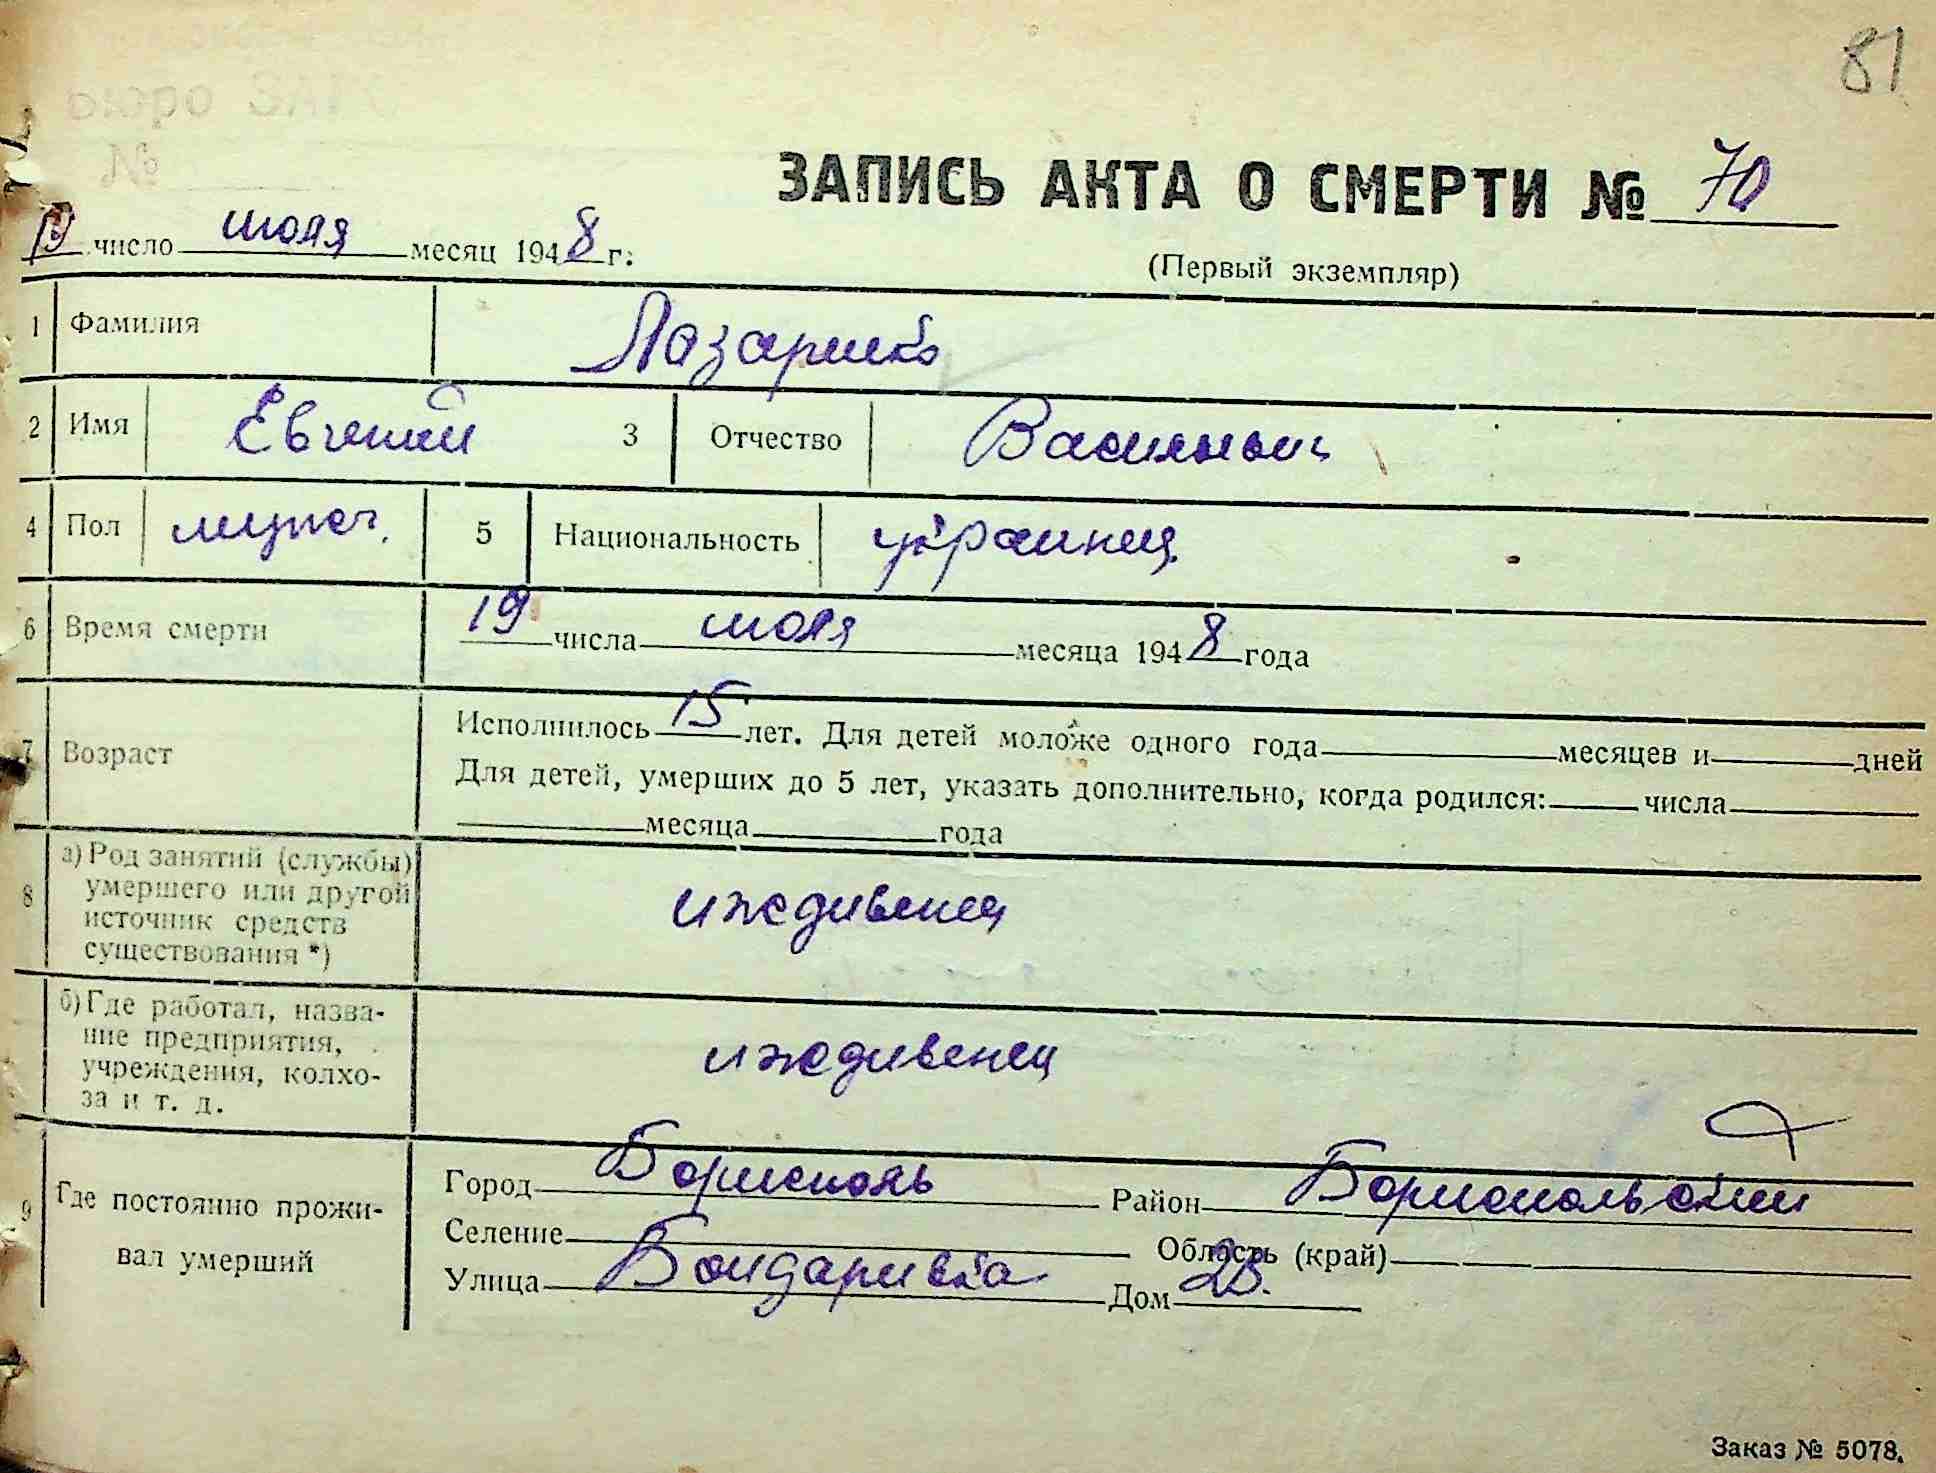 81
бюро ЗАГС
№
ЗАПИСЬ АКТА О СМЕРТИ № 70
19 число июля месяц 1948 г.
(Первый экземпляр)
1 Фамилия Лазаренко
2 Имя Евгений 3 Отчество Васильев
4 Пол мужск. 5 Национальность украинец
6 Время смерти 19 числа июля месяца 1948 года
7 Возраст Исполнилось 15 лет. Для детей моложе одного года месяцев и дней
Для детей, умерших до 5 лет, указать дополнительно, когда родился: числа
месяца года
8 а) Род занятий (службы)
умершего или другой
источник средств
существования *)
иждивенец
б) Где работал, назва-
ние предприятия,
учреждения, колхо-
за и т. д.
иждивенец
9 Где постоянно прожи-
вал умерший
Город Борисполь Район Бориспольский
Селение Область (край)
Улица Бондаривка Дом 28.
Заказ № 5078.